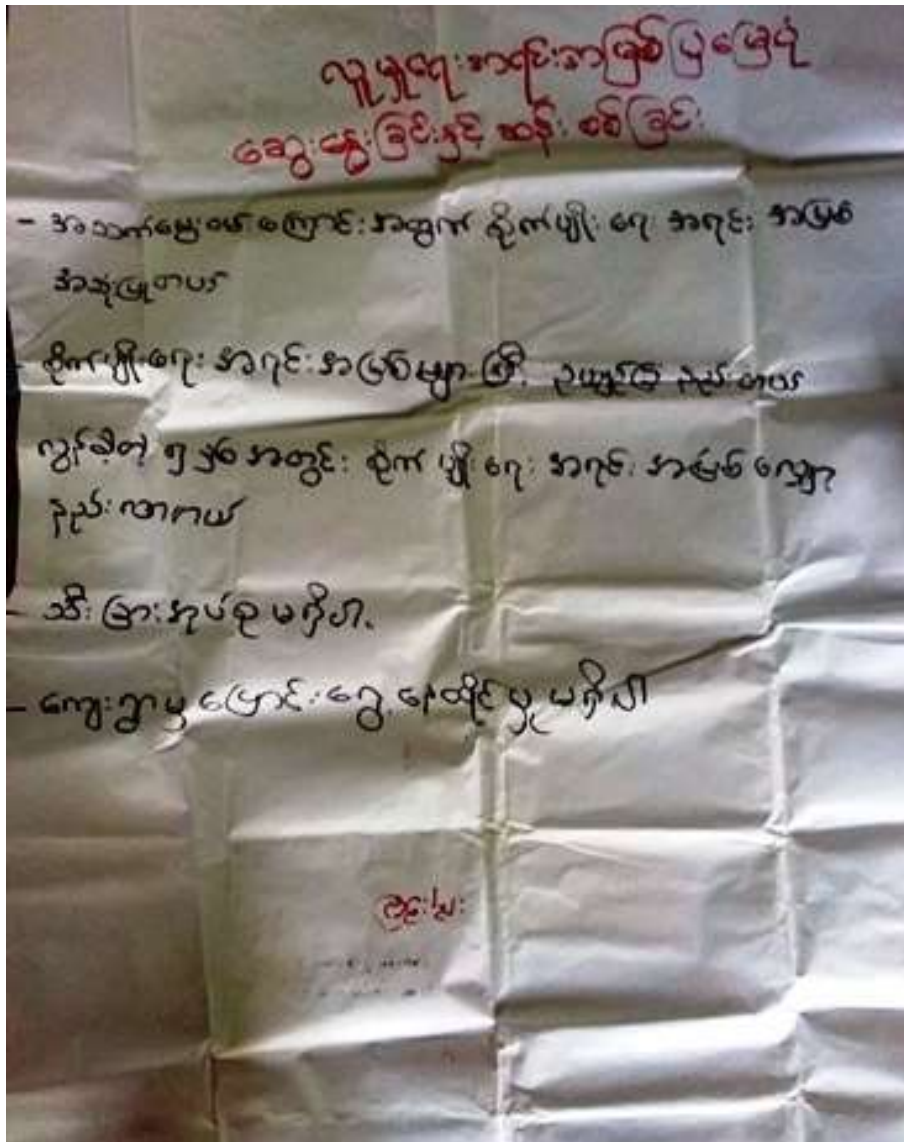 လူမှုရေးအရင်းအမြစ်ပြမြေပုံ
ဆွေးနွေးခြင်းနှင့် ဆန်းစစ်ခြင်း
- အသက်မွေးဝမ်းကြောင်းအတွက် စိုက်ပျိုးရေး အရင်း အမြစ်
အသုံးပြုတယ်
- စိုက်ပျိုးရေး အရင်းအမြစ်များ ပြီး နည်းတယ်
လွန်ခဲ့တဲ့ ၅ နှစ်အတွင်း စိုက်ပျိုးရေး အရင်း အမြစ် လျော့
နည်းလာတယ်
- သီးခြားအုပ်စု မရှိပါ.
- ကျေးရွာမှ ပြောင်းရွှေ့ နေထိုင်မှု မရှိပါ